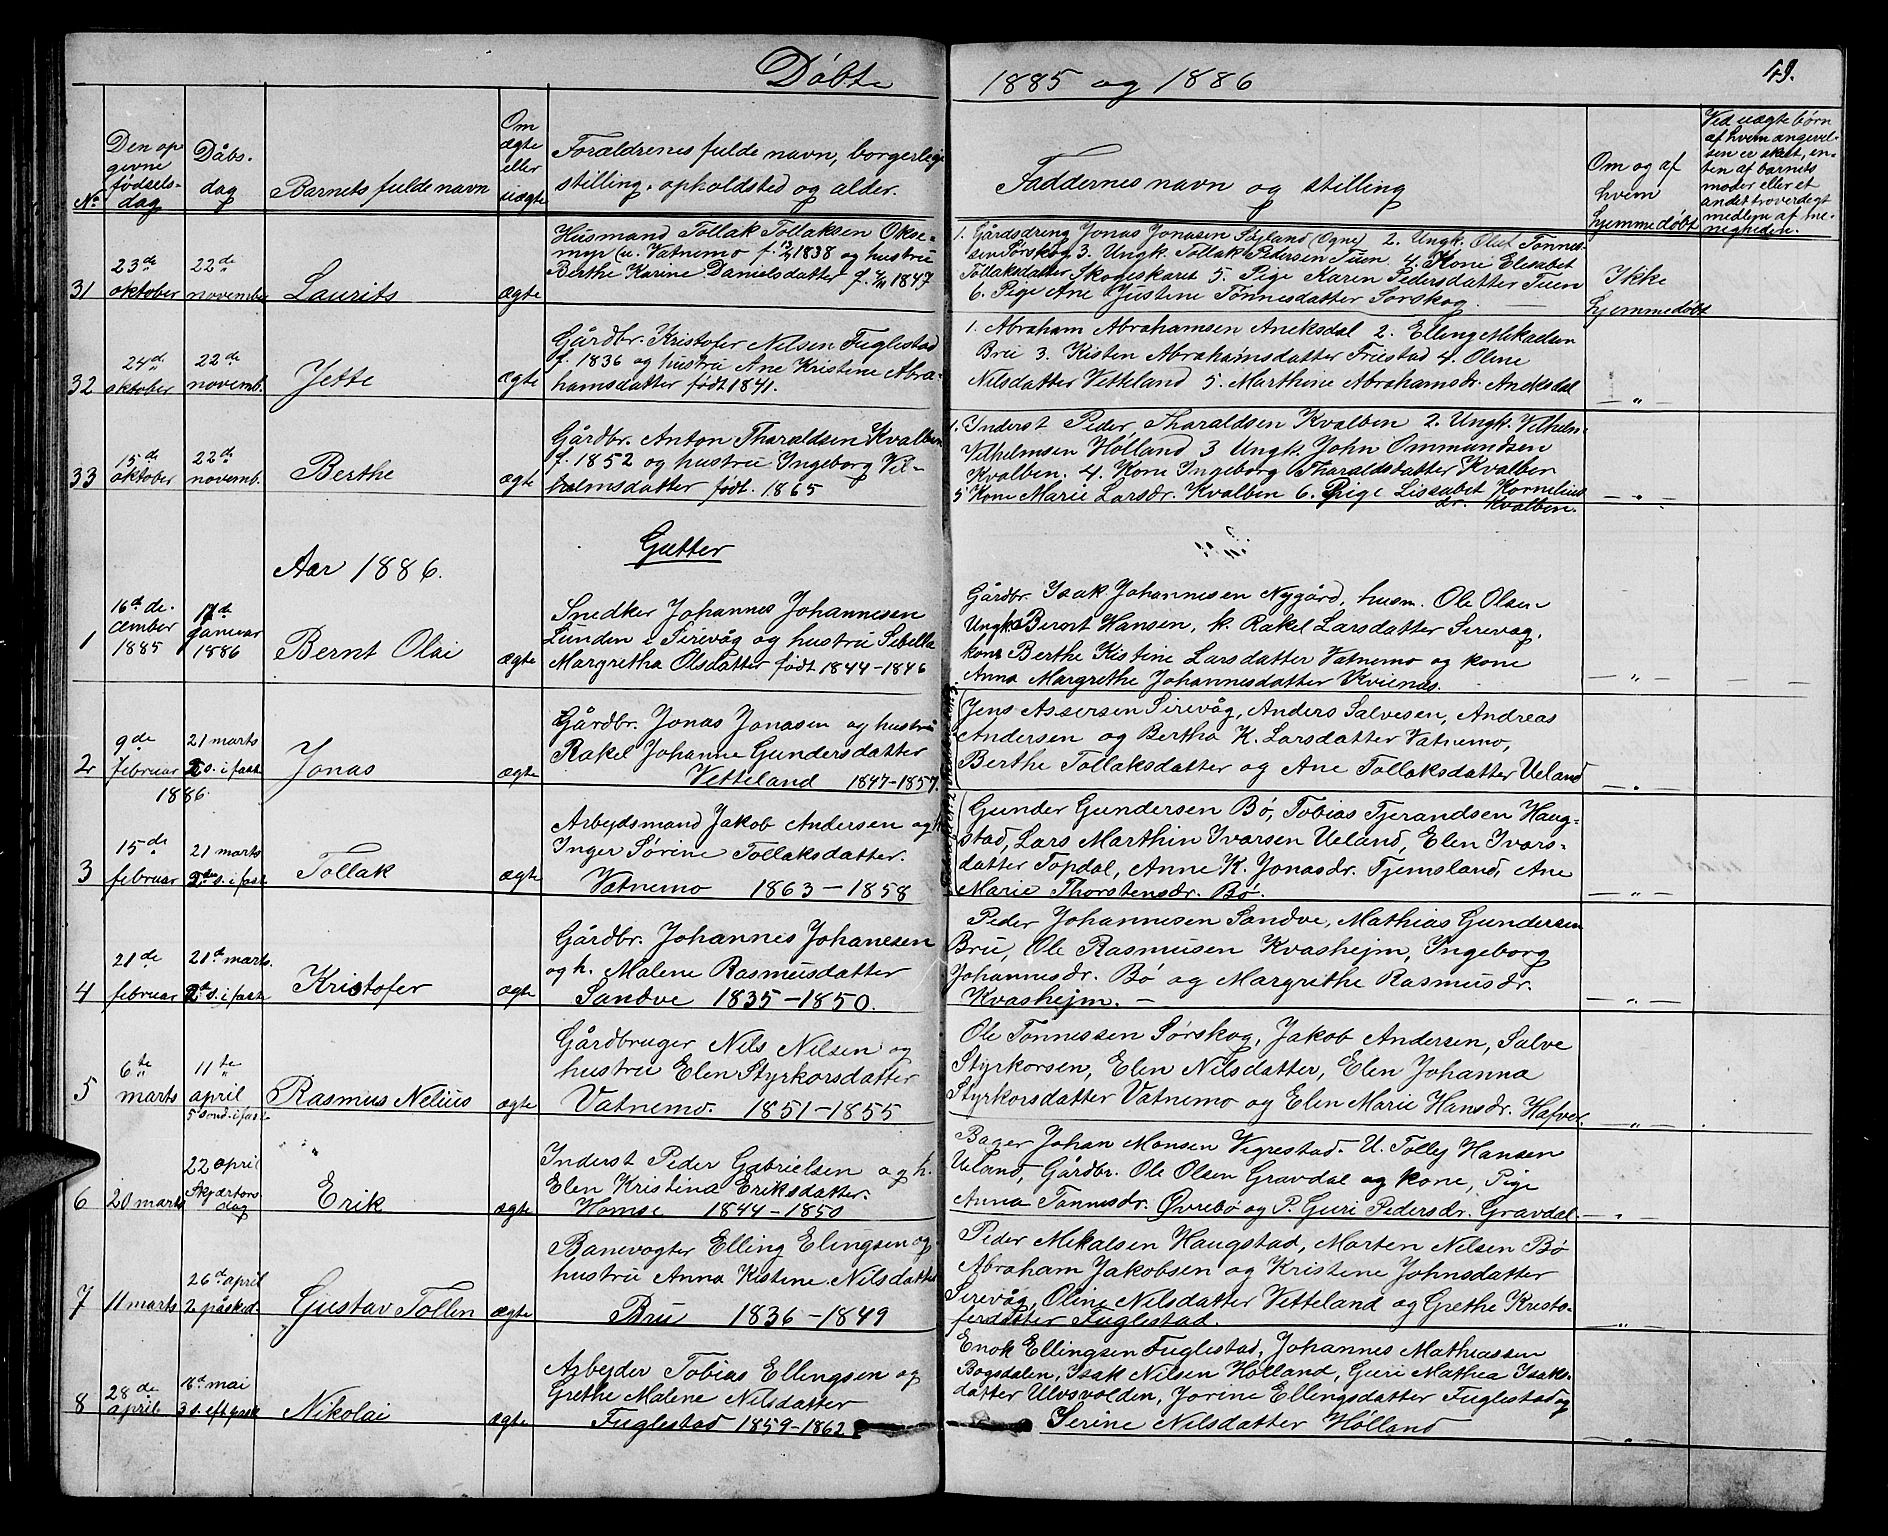 Döbte
1885 og 1886
49.
No
Den op
givne
fødsels-
dag
Dåbs-
dag
Barnets fulde navn
Om
ægte
eller
uægte
Forældrenes fulde navn, borgerlige
stilling, opholdsted og alder.
Faddernes navn og stilling
Om og af
hvem
hjemmedøbt
Ved uægte børn
af hvem angivel-
sen er skeet, en-
ten af barnets
moder eller et
andet troverdigt
medlem af me-
nigheden.
31
23de
oktober
22de
november
Laurits
ægte
Husmand Tollak Tollaksen Okse-
myr (u. Vatnemo f. 1838 og hustru
Berthe Karine Danielsdatter f. 1847
1. Gårdsdreng Jonas Jonasen Styland (Ogne) 2. Ungk. Oluf Tønnes-
sen Sørskog 3. Ungk. Tollak Pedersen Tuen 4. Kone Elisabet
Tollaksdatter Skogeskaret 5. Pige Karen Pedersdatter Tuen
6. Pige Ane Justene Tønnesdatter Sørskog
Ikke
hjemmedøbt
32
24de
oktober
22de
novemb.
Jette
ægte
Gårdbr. Kristofer Nilsen Fuglestad
f. 1836 og hustru Ane Kristene Abra-
hamsdatter født 1841.
1. Abraham Abrahamsen Aneksdal 2. Elling Mikaelsen
Bru 3. Kisten Abrahamsdatter Frustad 4. Oline
Nilsdatter Vetteland 5. Marthine Abrahamsdr. Aneksdal
— " —
33
15de
oktober
22de
novemb.
Berthe
ægte
Gårdbr. Anton Tharaldsen Kvalben
f. 1852 og hustru Ingeborg Vil-
helmsdatter født 1865
1. Inderst Peder Tharaldsen Kvalben 2. Ungk. Vilhelm
Vilhelmsen Hölland 3 Ungk. John Ommundsen
Kvalben. 4. Kone Ingeborg Tharaldsdatter Kvalben
5 Kone Marie Larsdr. Kvalben 6. Pige Lissabet Kornelius
dr. Kvalben.
— " —
Aar 1886.
Gutter
1
16de de-
cember
1885
17de
januar
1886
Bernt Olai
ægte
Snedker Johannes Johannesen
Lunden i Sirevåg og hustru Sibella
Margretha Olsdatter født 1844-1846
Gårdbr. Isak Johannesen Nygård, husm. Ole Olsen
Ungk. Berent Hansen, k. Rakel Larsdatter Sirevåg,
kone Berthe Kistine Larsdatter Vatnemo og kone
Anna Margrethe Johannesdatter Kvienas.
— " —
— —
2
9de
februar
1886
21 marts
2 s. i faste
Jonas
ægte
Gårdbr. Jonas Jonasen og hustru
Rakel Johanne Gundersdatter
Vetteland 1847-1857.
Jens Assersen Sirevåg, Anders Salvesen, Andreas
Andersen og Bertha K. Larsdatter Vatnemo,
Berthe Tollaksdatter og Ane Tollaksdatter Ueland
— " —
3
15de
februar
21 marts
2den s. i faste
Tollak
ægte
Arbejdsmand Jakob Andersen og h.
Inger Sørine Tollaksdatter.
Vatnemo 1863-1858
Gunder Gundersen Bö, Tobias Tjerandsen Haug-
stad, Lars Marthin Ivarsen Ueland, Elen Ivars-
datter Topdal, Anne K. Jonasdr. Tjemsland, Ane
Marie Thorstensdr. Bö.
— " —
4
21de
februar
21de marts.
2den s. i faste
Kristofer
ægte
Gårdbr. Johannes Johanesen
og h. Malene Rasmusdatter
Sandve 1835-1850.
Peder Johannesen Sandve, Mathias Gundersen
Bru, Ole Rasmusen Kvashejm, Ingeborg
Johannesdr. Bö og Margrithe Rasmusdr.
Kvashejm. —
— " —
5
6te
marts
11te
april
5 sond. i faste
Rasmus Nelius
ægte
Gårdbruger Nils Nilsen og
hustru Elen Styrkorsdatter
Vatnemo. 1851-1855
Ole Tønnessen Sørskog, Jakob Andersen, Salve
Styrkorsen, Elen Nilsdatter, Elen Johanna
Styrkorsdatter Vatnemo og Elen Marie Hansdr. Hafver.
— " —
6
20 marts
22 april
Skjærtors-
dag
Erik
ægte
Inderst Peder Gabrielsen og h.
Elen Kristina Eriksdatter.
Homse 1844-1850
Bager Johan Monsen Vigrestad. U. Tollej Hansen
Ueland, Gårdbr. Ole Olsen Gravdal og kone, Pige
Anna Tønnesdr. Øvrebø og P. Guri Pedersdr. Gravdal.
— " —
7
11 marts
26de april
2 påsked.
Gustav Tollen
ægte
Banevogter Elling Elingsen og
hustru Anna Kistine Nilsdatter
Bru 1836-1849
Peder Mikalsen Haugstad, Morten Nilsen Bö
Abraham Jakobsen og Kristene Johnsdatter
Sirevåg, Oline Nilsdatter Vetteland og Grethe Kristo-
fersdatter Fuglestad.
— " —
8
28de
april
16de mai
3 s. eft påsk
Nikolai
ægte
Arbejder Tobias Ellingsen og
Grethe Malene Nilsdatter
Fuglestad 1859-1862
Enok Ellingsen Fuglestad, Johannes Mathiassen
Bogsdalen, Isak Nilsen Hölland, Guri Mathea Isaks-
datter Ulvsvolden, Jorine Ellingsdatter Fuglestad og
Serine Nilsdatter Hölland
— " —